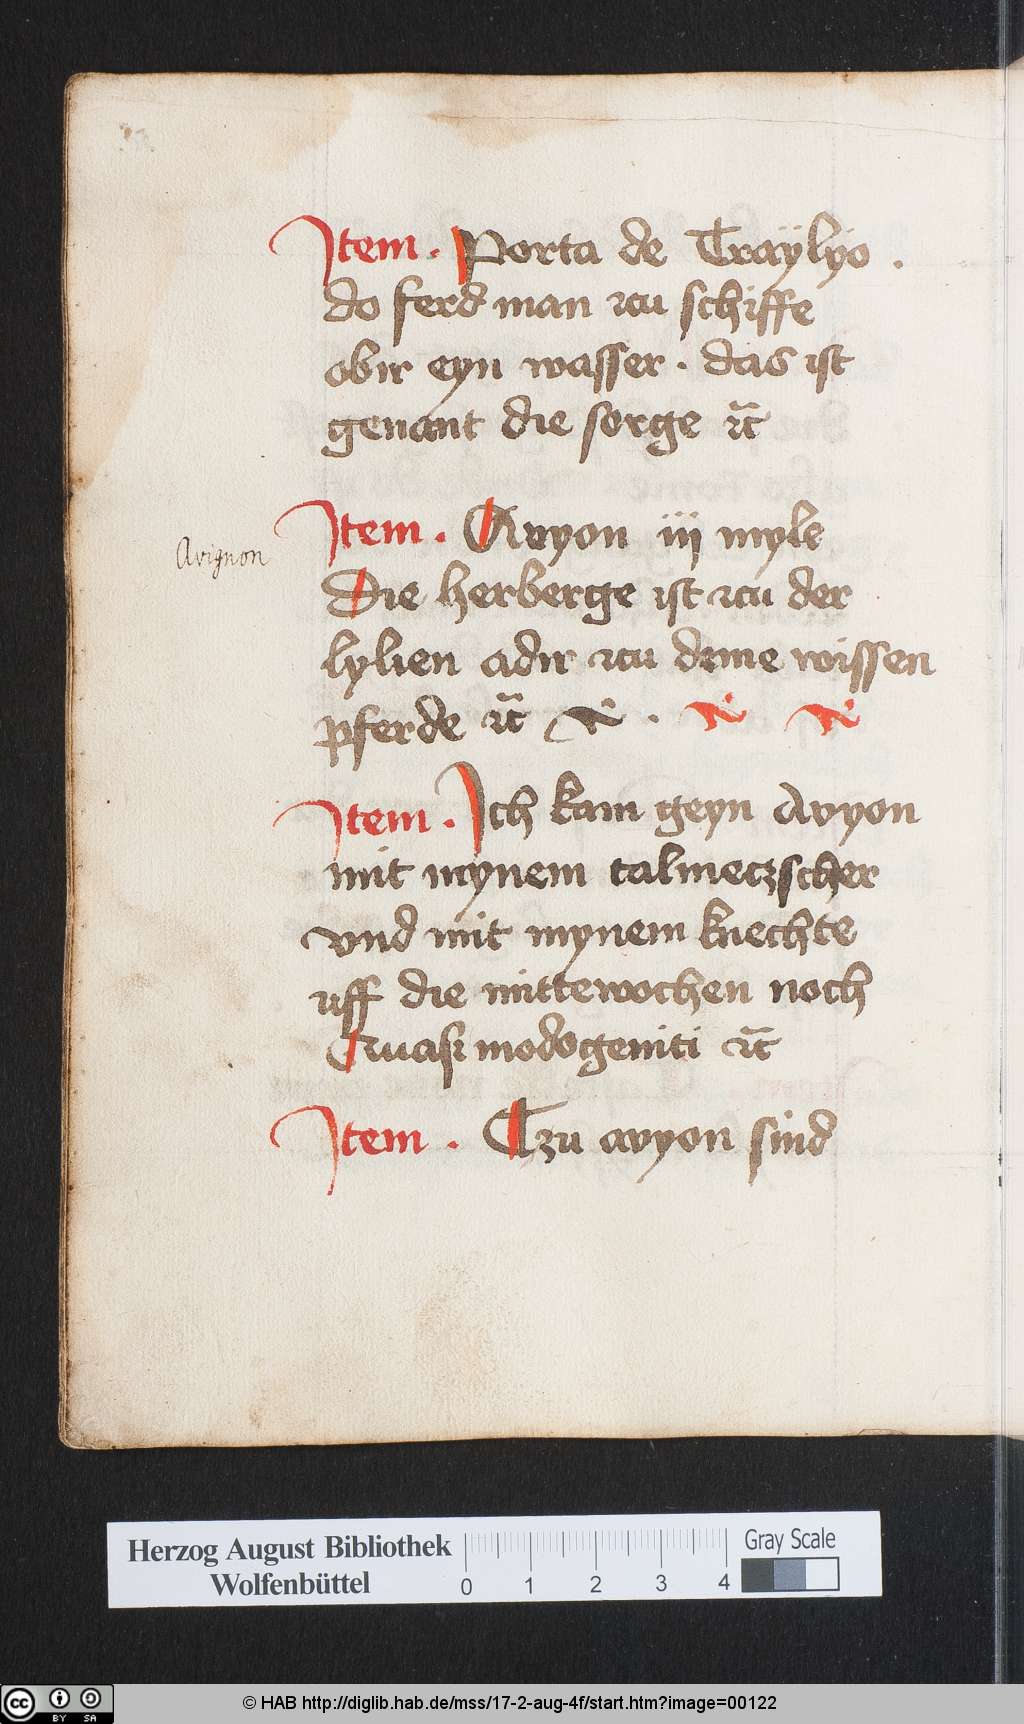 Item . Porta de Traÿlyo .
do ferd man czu schiffe
obir eyn wasser . das ist
genant die sorge ꝛc̃
Item . Avyon iij myle
Avignon
Die herberge ist czu der
lylien adir czu deme wissen
pferde ꝛc̃
Item . Ich kam geyn Avyon
mit mynem talmeczscher
vnd mit mynem knechte
uff die mittewochen noch
Quasi modogeniti ꝛc̃
Item . Tzu avyon sind
Herzog August Bibliothek
Wolfenbüttel
0 1 2 3 4
Gray Scale
cc BY SA
© HAB http://diglib.hab.de/mss/17-2-aug-4f/start.htm?image=00122